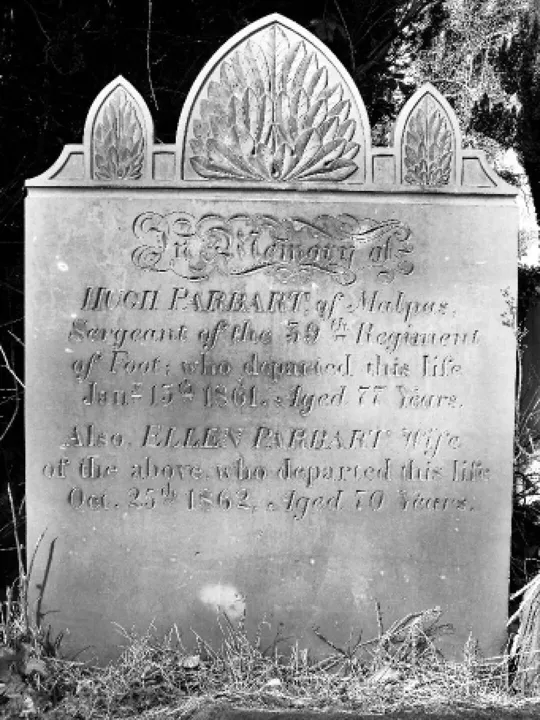 In Memory of
HUGH PARBART, of Malpas,
Sergeant of the 39th Regiment
of Foot; who departed this life
Jany. 15th 1861. Aged 77 Years.
Also, ELLEN PARBART Wife
of the above, who departed this life
Oct. 25th 1862, Aged 70 Years.